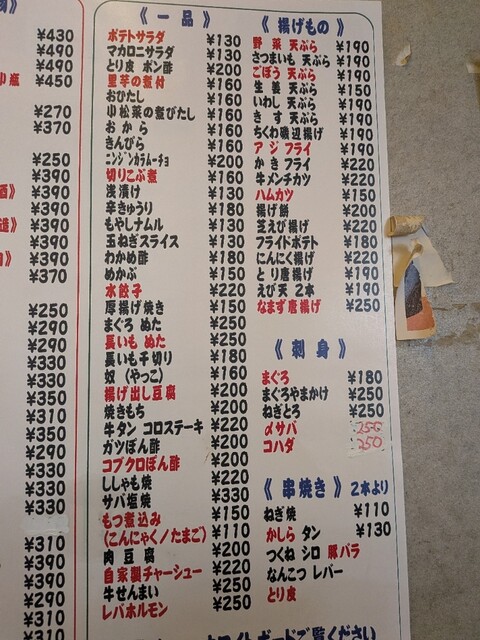 ¥430
¥490
¥490
小瓶 ¥450
¥270
¥370
¥250
¥390
¥390
¥390
¥390
¥390
¥390
¥370
¥250
¥290
¥290
¥330
¥350
¥310
¥350
¥290
¥330
¥330
¥330
¥310
¥390
¥390
¥290
¥310
¥310
《 一 品 》
ポテトサラダ ¥130
マカロニサラダ ¥130
とり皮 ポン酢 ¥130
里芋の煮付 ¥160
おひたし ¥160
小松菜の煮びたし ¥160
お か ら ¥160
きんぴら ¥160
ニンジンカラムーチョ ¥200
切りこぶ煮 ¥160
浅漬け ¥130
辛きゅうり ¥180
もやしナムル ¥130
玉ねぎスライス ¥130
わかめ酢 ¥180
めかぶ ¥150
水餃子 ¥220
厚揚げ焼き ¥150
まぐろ ぬた ¥250
長いも ぬた ¥250
長いも千切り ¥180
奴 (やっこ) ¥160
揚げ出し豆腐 ¥200
焼きもち ¥200
牛タン コロステーキ ¥220
ガツぽん酢 ¥200
コブクロぽん酢 ¥200
ししゃも焼 ¥220
サバ塩焼 ¥330
もつ煮込み ¥150
(こんにゃく/たまご) ¥110
肉 豆 腐 ¥200
自家製チャーシュー ¥220
牛せんまい ¥200
レバホルモン ¥250
《 揚げもの 》
野 菜 天ぷら ¥190
さつまいも 天ぷら ¥190
ごぼう 天ぷら ¥190
生 姜 天ぷら ¥150
いわし 天ぷら ¥190
き す 天ぷら ¥190
ちくわ磯辺揚げ ¥190
ア ジ フライ ¥190
か き フライ ¥220
牛メンチカツ ¥220
ハムカツ ¥150
揚げ餅 ¥200
芝えび揚げ ¥220
フライドポテト ¥180
にんにく揚げ ¥220
と り唐揚げ ¥190
えび天 2本 ¥190
なまず唐揚げ ¥250
《 刺 身 》
まぐろ ¥180
まぐろやまかけ ¥250
ねぎとろ ¥250
〆サバ 250
コハダ 250
《 串焼き 》 2本より
ねぎ焼 ¥110
かしら タン ¥130
つくね シロ 豚バラ
なんこつ レバー
とり皮
ホワイトボードご覧ください